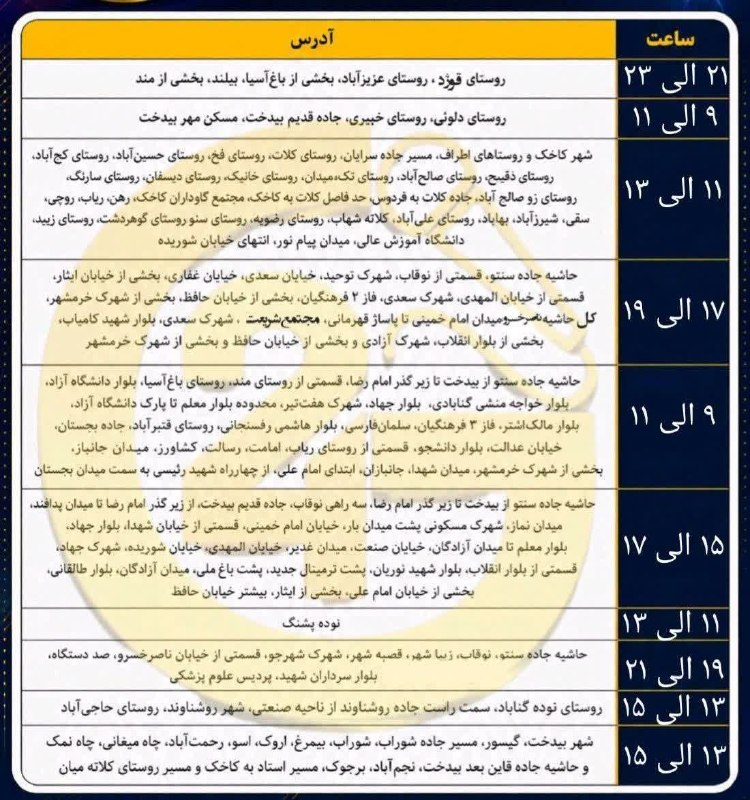 ساعت
آدرس
۲۱ الی ۲۳
روستای قوژد، روستای عزیزآباد، بخشی از باغ‌آسیا، بیلند، بخشی از مند
۹ الی ۱۱
روستای دلوئی، روستای خیبری، جاده قدیم بیدخت، مسکن مهر بیدخت
۱۱ الی ۱۳
شهر کاخک و روستاهای اطراف، مسیر جاده سرایان، روستای کلات، روستای فخ، روستای حسین‌آباد، روستای کج‌آباد،
روستای دقیبح، روستای صالح‌آباد، روستای تک‌میدان، روستای خانیک، روستای دیسفان، روستای سارنگ،
روستای زو صالح آباد، جاده کلات به فردوس، حد فاصل کلات به کاخک، مجتمع گاوداران کاخک، رهن، ریاب، روچی،
سقی، شیرزآباد، بهاباد، روستای علی‌آباد، کلاته شهاب، روستای رضویه، روستای سنو روستای گوهردشت، روستای زیبد،
دانشگاه آموزش عالی، میدان پیام نور، انتهای خیابان شوریده
۱۷ الی ۱۹
حاشیه جاده سنتو، قسمتی از نوقاب، شهرک توحید، خیابان سعدی، خیابان غفاری، بخشی از خیابان ایثار،
قسمتی از خیابان المهدی، شهرک سعدی، فاز ۲ فرهنگیان، بخشی از خیابان حافظ، بخشی از شهرک خرمشهر،
کل حاشیه ناصرخسرو میدان امام خمینی تا پاساژ قهرمانی، مجتمع شریعت ، شهرک سعدی، بلوار شهید کامیاب،
بخشی از بلوار انقلاب، شهرک آزادی و بخشی از خیابان حافظ و بخشی از شهرک خرمشهر
۹ الی ۱۱
حاشیه جاده سنتو از بیدخت تا زیر گذر امام رضا، قسمتی از روستای مند، روستای باغ‌آسیا، بلوار دانشگاه آزاد،
بلوار خواجه منشی گنابادی، بلوار جهاد، شهرک هفت‌تیر، محدوده بلوار معلم تا پارک دانشگاه آزاد،
بلوار مالک‌اشتر، فاز ۳ فرهنگیان، سلمان‌فارسی، بلوار هاشمی رفسنجانی، روستای قنبرآباد، جاده بجستان،
خیابان عدالت، بلوار دانشجو، قسمتی از روستای ریاب، امامت، رسالت، کشاورز، میدان جانباز،
بخشی از شهرک خرمشهر، میدان شهدا، جانبازان، ابتدای امام علی، از چهارراه شهید رئیسی به سمت میدان بجستان
۱۵ الی ۱۷
حاشیه جاده سنتو از بیدخت تا زیر گذر امام رضا، سه راهی نوقاب، جاده قدیم بیدخت، از زیر گذر امام رضا تا میدان پدافند،
میدان نماز، شهرک مسکونی پشت میدان بار، خیابان امام خمینی، قسمتی از خیابان شهدا، بلوار جهاد،
بلوار معلم تا میدان آزادگان، خیابان صنعت، میدان غدیر، خیابان المهدی، خیابان شوریده، شهرک جهاد،
قسمتی از بلوار انقلاب، بلوار شهید نوریان، پشت ترمینال جدید، پشت باغ ملی، میدان آزادگان، بلوار طالقانی،
بخشی از خیابان امام علی، بخشی از ایثار، بیشتر خیابان حافظ
۱۱ الی ۱۳
نوده پشنگ
۱۹ الی ۲۱
حاشیه جاده سنتو، نوقاب، زیبا شهر، قصبه شهر، شهرک شهرجو، قسمتی از خیابان ناصرخسرو، صد دستگاه،
بلوار سرداران شهید، پردیس علوم پزشکی
۱۳ الی ۱۵
روستای نوده گناباد، سمت راست جاده روشناوند از ناحیه صنعتی، شهر روشناوند، روستای حاجی‌آباد
۱۳ الی ۱۵
شهر بیدخت، گیسور، مسیر جاده شوراب، شوراب، بیمرغ، اروک، اسو، رحمت‌آباد، چاه میغانی، چاه نمک
و حاشیه جاده قاین بعد بیدخت، نجم‌آباد، برجوک، مسیر استاد به کاخک و مسیر روستای کلاته میان